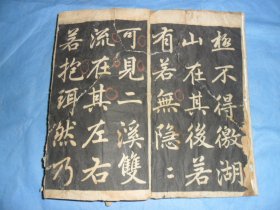 極不得微湖
山在其後若
有若無隐〻
可見二溪雙
流在其左右
若抱珥然乃